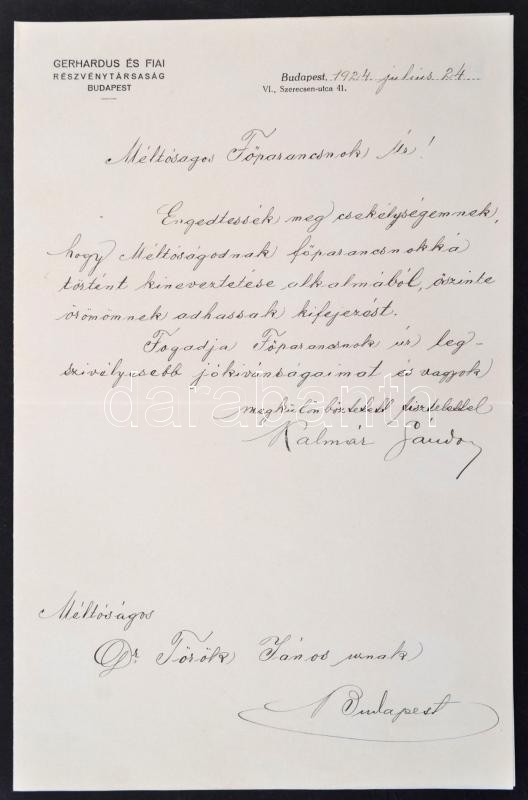 GERHARDUS ÉS FIAI
RÉSZVÉNYTÁRSASÁG
BUDAPEST
Budapest, 1924 július 24
VI., Szerecsen-utca 41.
Méltóságos Főparancsnok Úr!
Engedtessék meg csekélységemnek,
hogy Méltóságodnak főparancsnokká
történt kineveztetése alkalmából, őszinte
örömömnek adhassak kifejezést.
Fogadja Főparancsnok úr leg-
szivélyesebb jókivánságaimat és vagyok
megkülönböztetett tisztelettel
Kalmár Sándor
darabanth
Méltóságos
Dr Török János urnak
Budapest